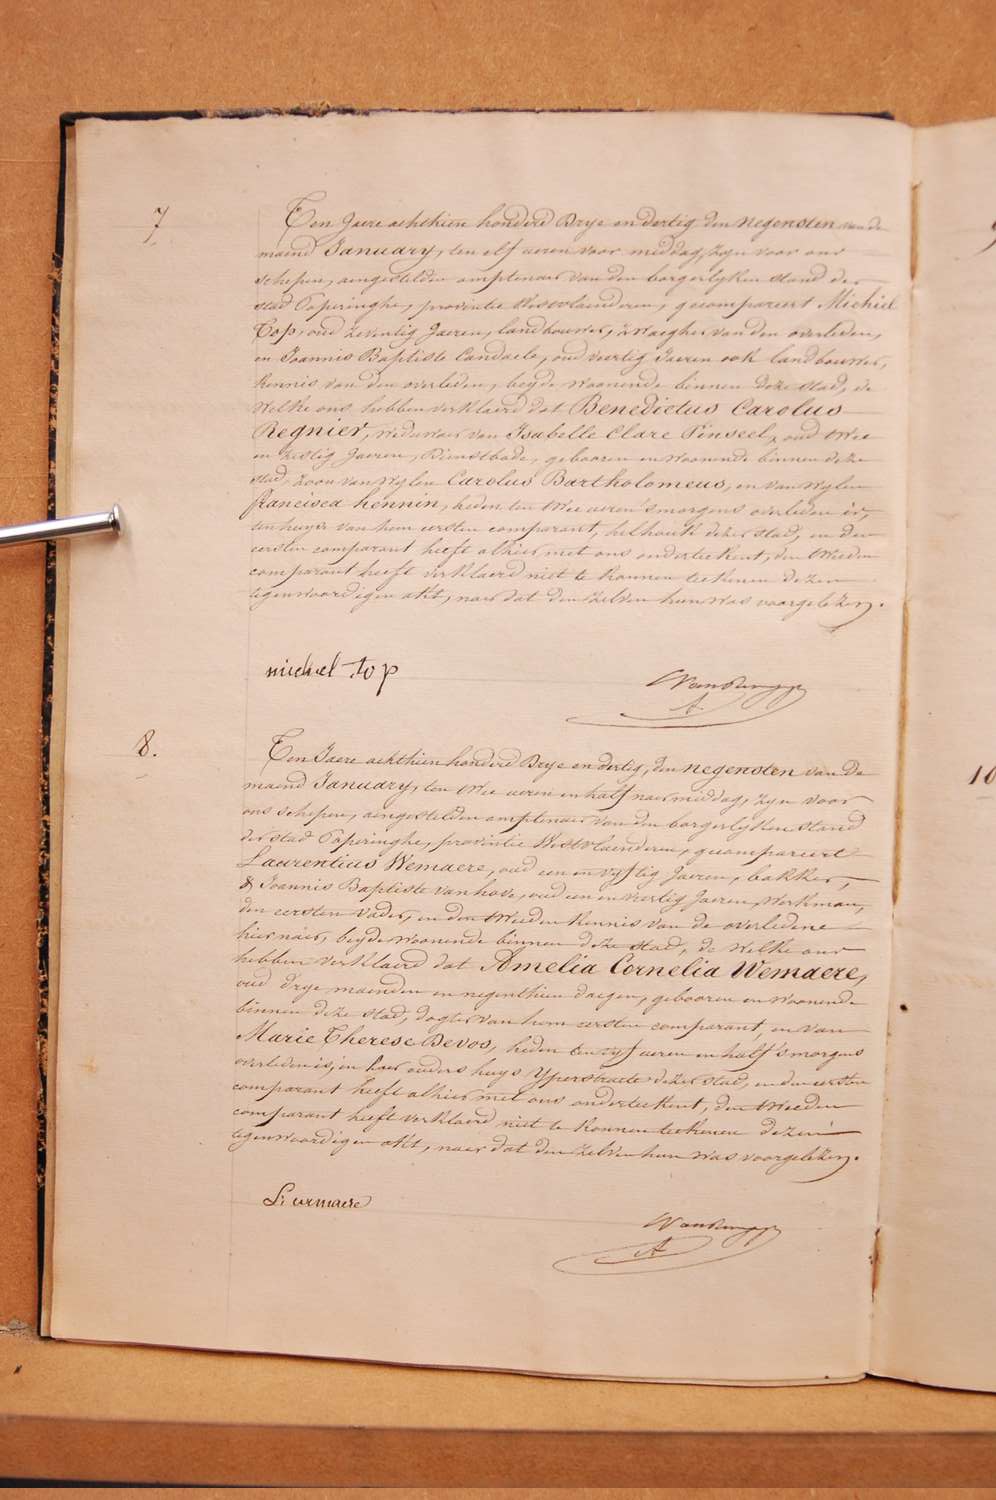 7
Ten Jaere achthien honderd Drye en dertig den negensten van de
maend January, ten elf ueren voor middag, Zyn voor ons
schepen, aengestelden amptenaer van den borgerlyken stand der
stad Poperinghe, provintie Westvlaenderen, gecompareert Michiel
Top, oud Zeventig Jaeren, landbouwer, zwaegher van den overleden,
en Joannis Baptiste Candaele, oud veertig Jaeren ook landbouwer,
kennis van den overleden, beyde woonende binnen deze stad, de
Welke ons hebben verklaerd dat Benedictus Carolus
Regnier, weduwaer van Isabelle Clare Pinseel, oud twee
en Zestig Jaeren, Dienstbode, gebooren en woonende binnen deze
stad, Zoon van Wylen Carolus Bartholomeus, en van Wylen
francisca hennin, heden ten twee ueren 's morgens overleden is,
ten huyze van hem eersten comparant, helhoek dezer stad, en den
eersten comparant heeft alhier met ons onderteekent, den tweeden
comparant heeft verklaerd niet te konnen teekenen dezen
tegenwoordigen akt, naer dat den Zelven hun was voorgelezen.
michiel top
8.
Ten Jaere achthien honderd Drye en dertig, den negensten van de
maend January, ten twee ueren en half naer middag, zyn voor
ons schepen, aengestelden amptenaer van den borgerlyken stand
der stad Poperinghe, provintie Westvlaenderen, gecompareert
Laurentius Wemaere, oud een en vyftig Jaeren, bakker,
& Joannis Baptiste vanhove, oud een en veertig Jaeren, Werkman,
den eersten vader, en den tweeden kennis van de overledene
hier naer, beyde woonende binnen deze stad, de welke ons
hebben verklaerd dat Amelia Cornelia Wemaere,
oud drye maenden en negenthien daegen, gebooren en woonende
binnen deze stad, dogter van hem eersten comparant, en van
Marie Therese Devos, heden ten vyf ueren en half 's morgens
overleden is, in haer ouders huys Yperstraete dezer stad, en den eersten
comparant heeft alhier met ons onderteekent, den tweeden
comparant heeft verklaerd niet te konnen teekenen dezen
tegenwoordigen akt, naer dat den Zelven hun was voorgelezen.
10